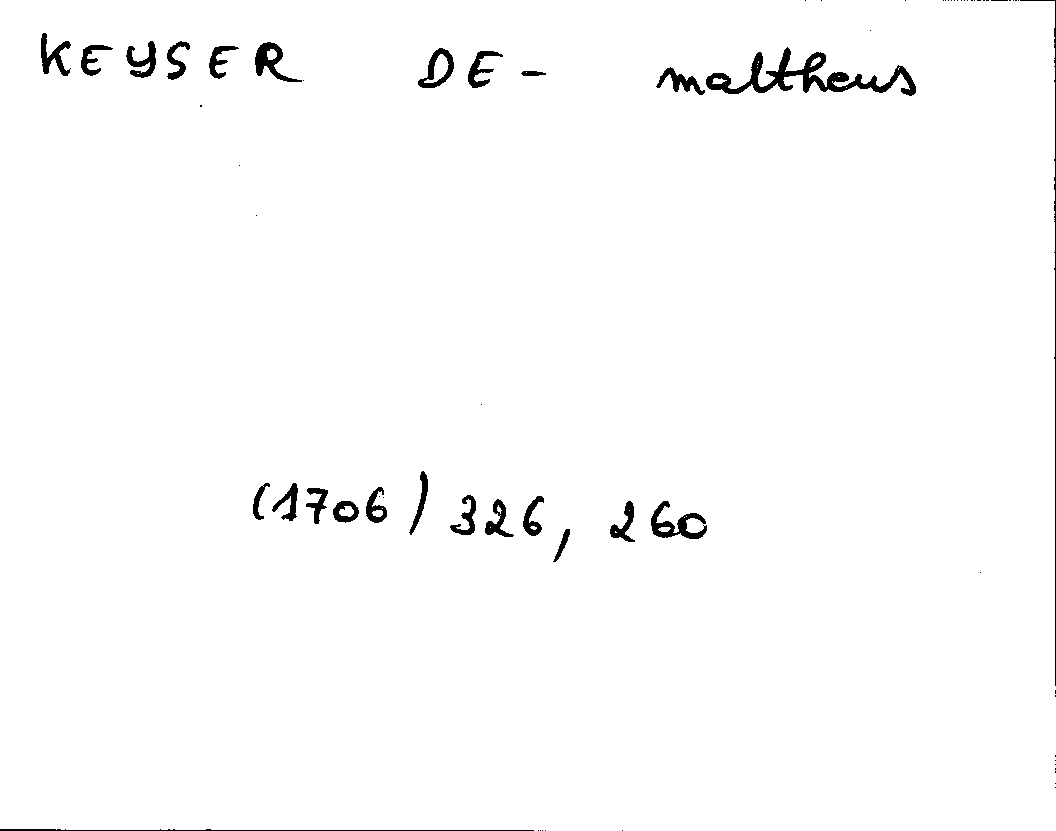 KEYSER DE- Mattheus
(1706) 326, 260